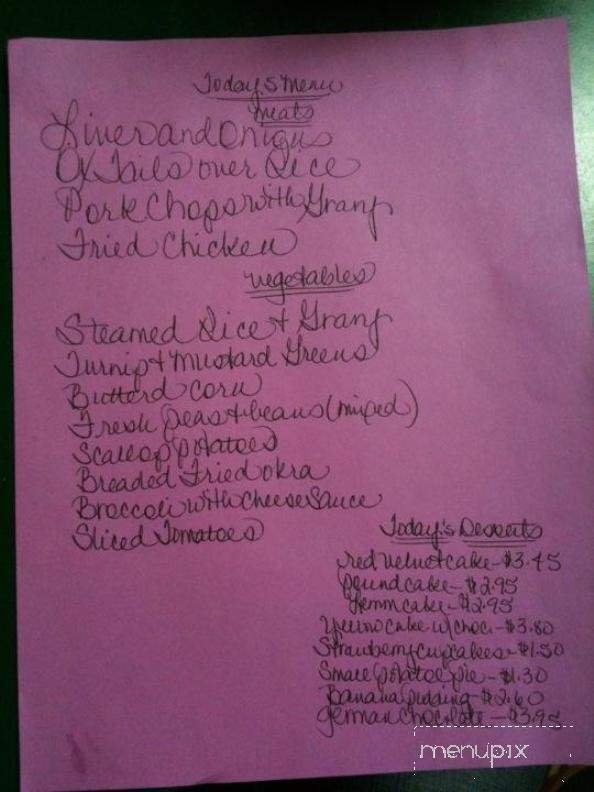 Today's Menu
Meats
Livers and Onions
Ox Tails over Rice
Pork Chops with Gravy
Fried Chicken
Vegetables
Steamed Rice + Gravy
Turnip + Mustard Greens
Butterd Corn
Fresh peas + beans (mixed)
Scallop potatoes
Breaded Fried okra
Broccoli with cheese Sauce
Sliced Tomatoes
Today's Desserts
red velvet cake - $3.45
pound cake - $2.95
cake - $2.95
Yellow cake w/choc. - $3.80
Strawberry cupcakes - $1.50
Small potatoe pie - $1.30
Banana pudding - $2.60
German chocolate - $3.95
menupix